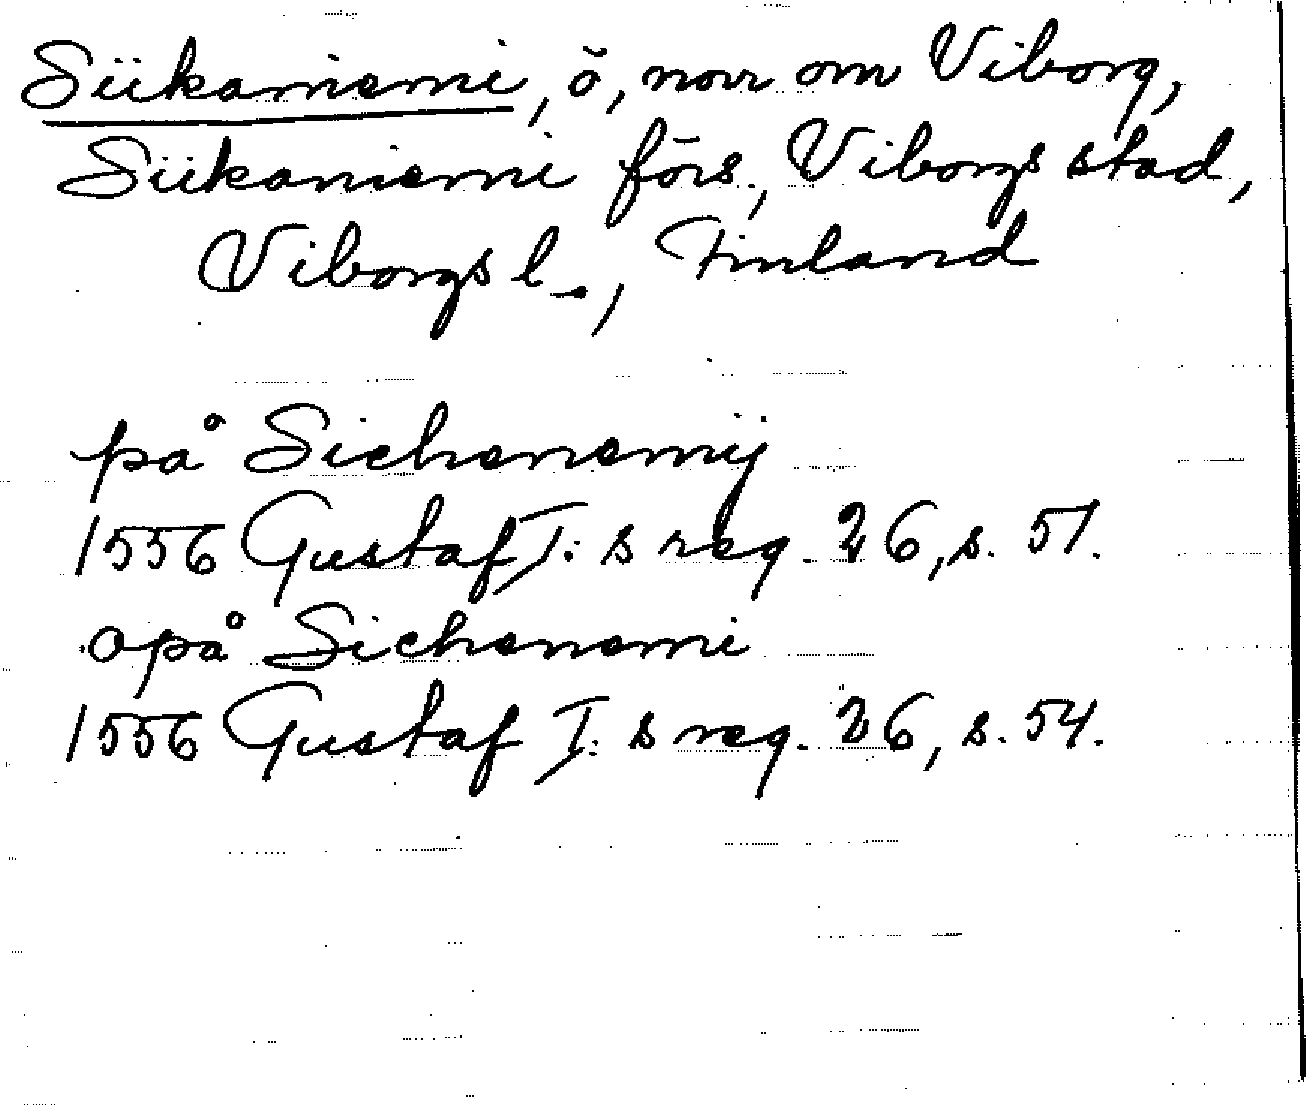 Siikaniemi, ö, norr om Viborg,
Siikaniemi förs., Viborgs stad,
Viborgs l., Finland
på Sichenemij
1556 Gustaf I:s reg. 26, s. 51.
opå Sichenemi
1556 Gustaf I:s reg. 26, s. 54.